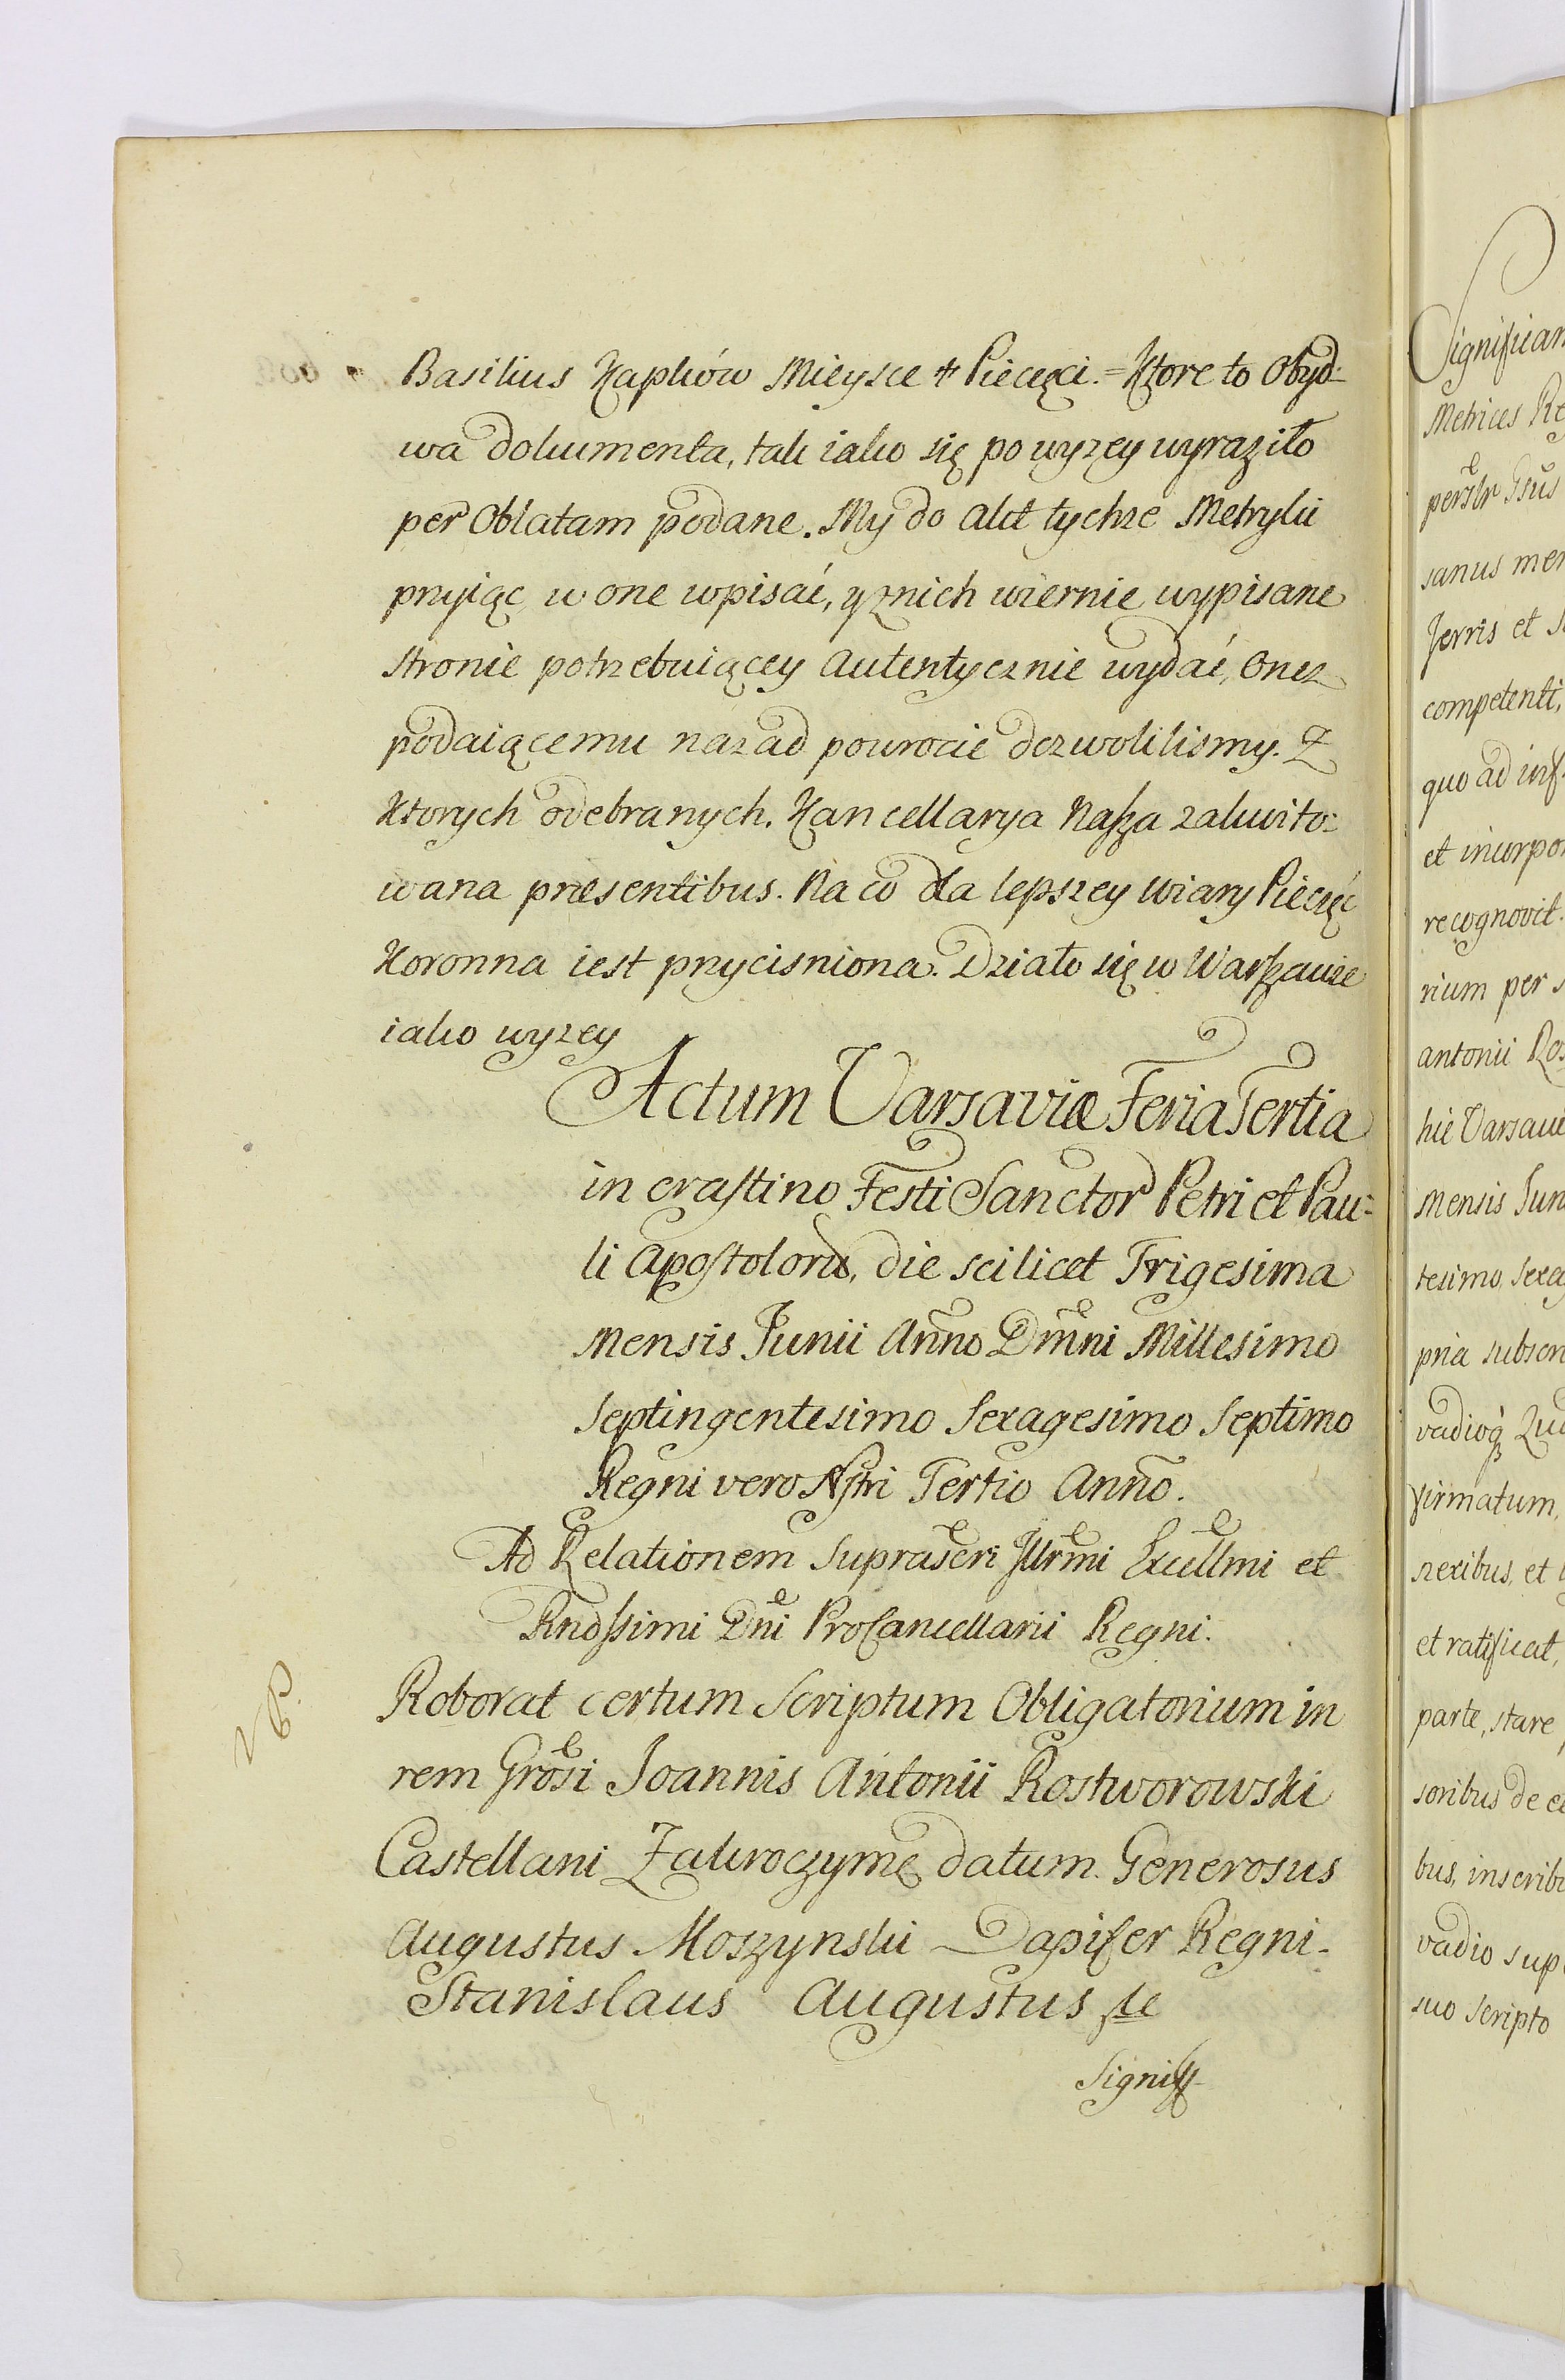 Basilius Kapków Mieysce ✝ Pieczęci. = Ktore to Obyd-
wa dokumenta, tak iako się powyzey wyraziło
per Oblatam podane. My do Akt tychze Metryki
przyiąc, w one wpisać, y z nich wiernie wypisane
stronie potrzebuiącey Autentycznie wydać, Onez
podaiącemu nazad powrocić dozwolilismy. Z
Ktorych odebranych. Kancellarya Nasza zakwito:
wana præsentibus. Na co dla lepszey Wiary Pieczęć
Koronna iest przycisniona. Działo się w Warszawie
iako wyzey
Actum Varsaviæ Feria Tertia
in crastino Festi Sanctor Petri et Pau:
li Apostolorū, die scilicet Trigesima
Mensis Junii Anno Dmni Millesimo
Septingentesimo Sexagesimo Septimo
Regni vero Nstri Tertio Anno.
Ad Relationem Suprascri Illrmi Excellmi et
Rndssimi Dni ProCancellarii Regni.
Roborat certum Scriptum Obligatorium in
rem Grosi Joannis Antonii Rostworowski
Castellani Zakroczymẽ datum. Generosus
Augustus Moszynski Dapifer Regni.
Stanislaus Augustus &c
Signiff
Significam
Metrices Re
sanus men
Terris et s
competenti,
quo ad inf
et incorpor
recognovit.
rium per s
antonii Ros
hic Varsavie
Mensis Jun
tesimo, sexag
pria subscri
vadioq̃ Qua
firmatum,
nexibus, et
et ratificat,
parte, stare
soribus de e
bus, inscribi
vadio sup
suo scripto